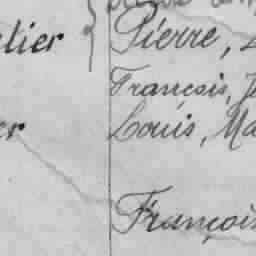 tier Pierre,
Francois,
er Louis, Ma
François